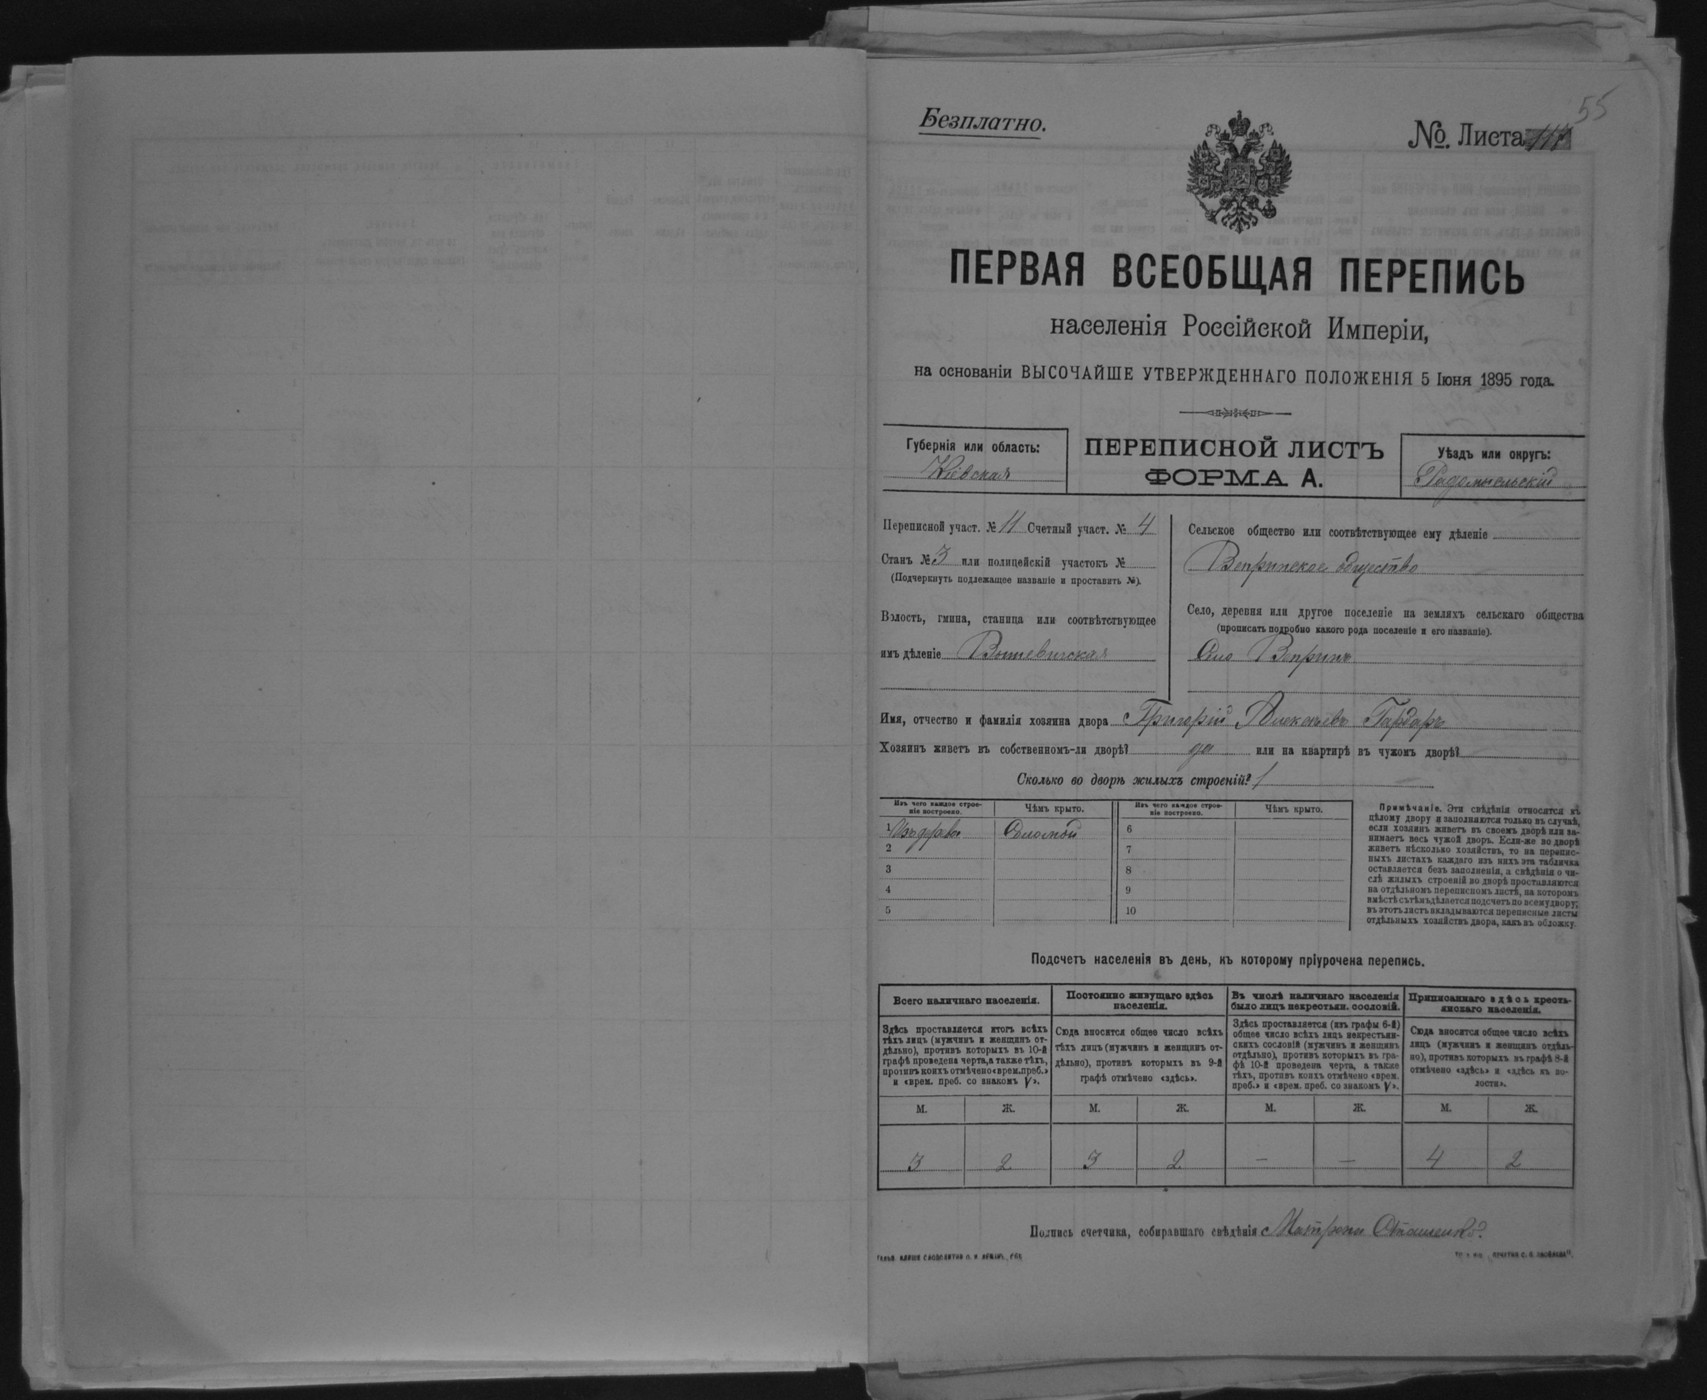 55
Безплатно.
№. Листа
ПЕРВАЯ ВСЕОБЩАЯ ПЕРЕПИСЬ
населенія Россійской Имперіи,
на основаніи ВЫСОЧАЙШЕ УТВЕРЖДЕННАГО ПОЛОЖЕНІЯ 5 Іюня 1895 года.
Губернія или область:
Кіевская
ПЕРЕПИСНОЙ ЛИСТЪ
ФОРМА А.
Уѣздъ или округъ:
Радомысльскій
Переписной участ. № 11 Счетный участ. № 4
Станъ № 3 или полицейскій участокъ №
(Подчеркнуть подлежащее названіе и проставить №).
Волость, гмина, станица или соотвѣтствующее
имъ дѣленіе
Сельское общество или соотвѣтствующее ему дѣленіе
Вепринское общество
Село, деревня или другое поселеніе на земляхъ сельскаго общества
(прописать подробно какого рода поселеніе и его названіе).
Село Вепринъ
Имя, отчество и фамилія хозяина двора Григорій
Хозяинъ живетъ въ собственномъ-ли дворѣ? да или на квартирѣ въ чужомъ дворѣ?
Сколько во дворѣ жилыхъ строеній? 1
Изъ чего каждое строе-
ніе построено.
Чѣмъ крыто.
Изъ чего каждое строе-
ніе построено.
Чѣмъ крыто.
1 Соломой 6
2 7
3 8
4 9
5 10
Примѣчаніе. Эти свѣдѣнія относятся къ
цѣлому двору и заполняются только въ случаѣ,
если хозяинъ живетъ въ своемъ дворѣ или за-
нимаетъ весь чужой дворъ. Если-же во дворѣ
живетъ нѣсколько хозяйствъ, то на перепис-
ныхъ листахъ каждаго изъ нихъ эта табличка
оставляется безъ заполненія, а свѣдѣнія о чи-
слѣ жилыхъ строеній во дворѣ проставляются
на отдѣльномъ переписномъ листѣ, на которомъ
вмѣстѣ съ тѣмъ дѣлается подсчетъ по всему двору;
въ этотъ листъ вкладываются переписные листы
отдѣльныхъ хозяйствъ двора, какъ въ обложку.
Подсчетъ населенія въ день, къ которому пріурочена перепись.
Всего наличнаго населенія.
Постоянно живущаго здѣсь
населенія.
Въ числѣ наличнаго населенія
было лицъ некрестьян. сословій.
Приписаннаго здѣсь кресть-
янскаго населенія.
Здѣсь проставляется итогъ всѣхъ
тѣхъ лицъ (мужчинъ и женщинъ от-
дѣльно), противъ которыхъ въ 10-й
графѣ проведена черта, а также тѣхъ,
противъ коихъ отмѣчено «врем. преб.»
и «врем. преб. со знакомъ V».
Сюда вносится общее число всѣхъ
тѣхъ лицъ (мужчинъ и женщинъ от-
дѣльно), противъ которыхъ въ 9-й
графѣ отмѣчено «здѣсь».
Здѣсь проставляется (изъ графы 6-й)
общее число всѣхъ лицъ некрестьян-
скихъ сословій (мужчинъ и женщинъ
отдѣльно), противъ которыхъ въ гра-
фѣ 10-й проведена черта, а также
тѣхъ, противъ коихъ отмѣчено «врем.
преб.» и «врем. преб. со знакомъ V».
Сюда вносится общее число всѣхъ
лицъ (мужчинъ и женщинъ отдѣль-
но), противъ которыхъ въ графѣ 8-й
отмѣчено «здѣсь» и «здѣсь въ во-
лости».
М. Ж. М. Ж. М. Ж. М. Ж.
3 2 3 2 — — 4 2
Подпись счетчика, собиравшаго свѣдѣнія